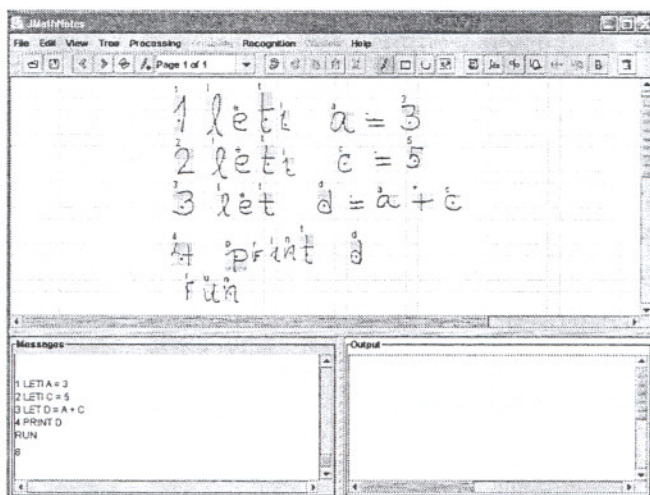 JMathNotes
File Edit View Tree Processing Recognition Help
Page 1 of 1
1 leti a = 3
2 leti c = 5
3 let d = a + c
4 print d
run
Messages
1 LETI A = 3
2 LETI C = 5
3 LET D = A + C
4 PRINT D
RUN
8
Output